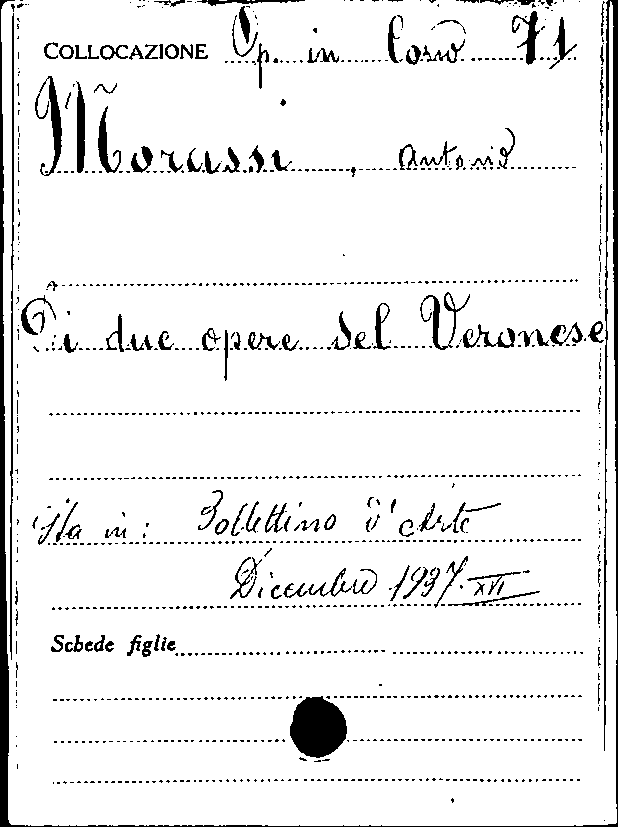 COLLOCAZIONE Op. in Corso 71
Morassi, Antonio
Di due opere del Veronese
Sta in: Bollettino d'Arte
Dicembre 1937. XVI
Schede figlie